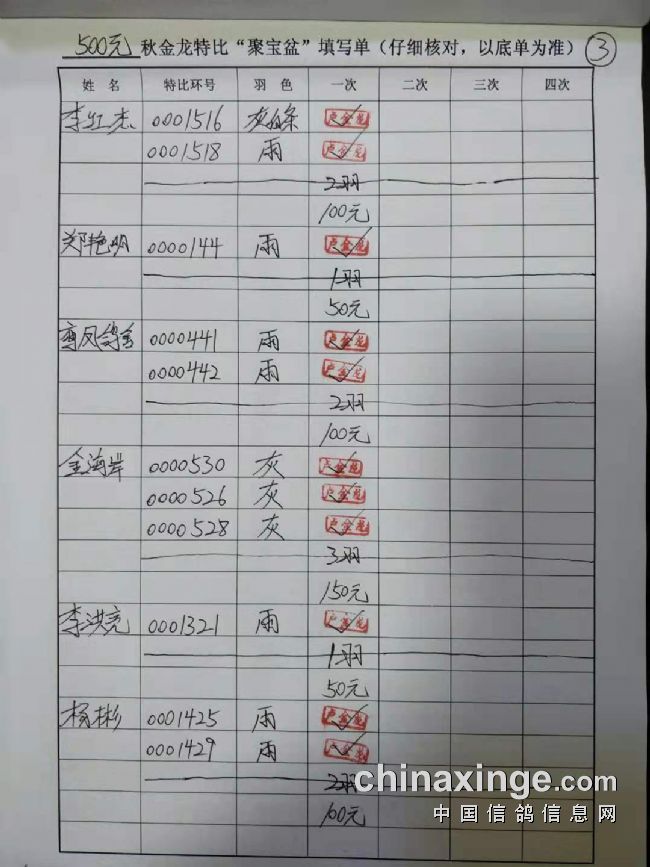 500元 秋金龙特比“聚宝盆”填写单（仔细核对，以底单为准） ③
姓 名 特比环号 羽 色 一次 二次 三次 四次
李红杰 0001516 灰白条 卢金龙
0001518 雨 卢金龙
2羽
100元
郑艳明 0000144 雨 卢金龙
1羽
50元
凤鸽舍 0000441 雨 卢金龙
0000442 雨 卢金龙
2羽
100元
金海岸 0000530 灰 卢金龙
0000526 灰 卢金龙
0000528 灰 卢金龙
3羽
150元
李洪亮 0001321 雨 卢金龙
1羽
50元
杨彬 0001425 雨 卢金龙
0001429 雨 卢金龙
2羽
100元
chinaxinge.com
中国信鸽信息网